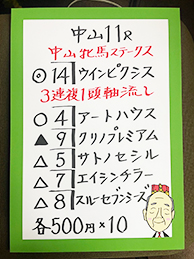 中山11R
中山牝馬ステークス
◎14ウインピクシス
3連複1頭軸流し
○4アートハウス
▲9クリノプレミアム
△5サトノセシル
△7エイシンチラー
△8スルーセブンシーズ
各500円×10